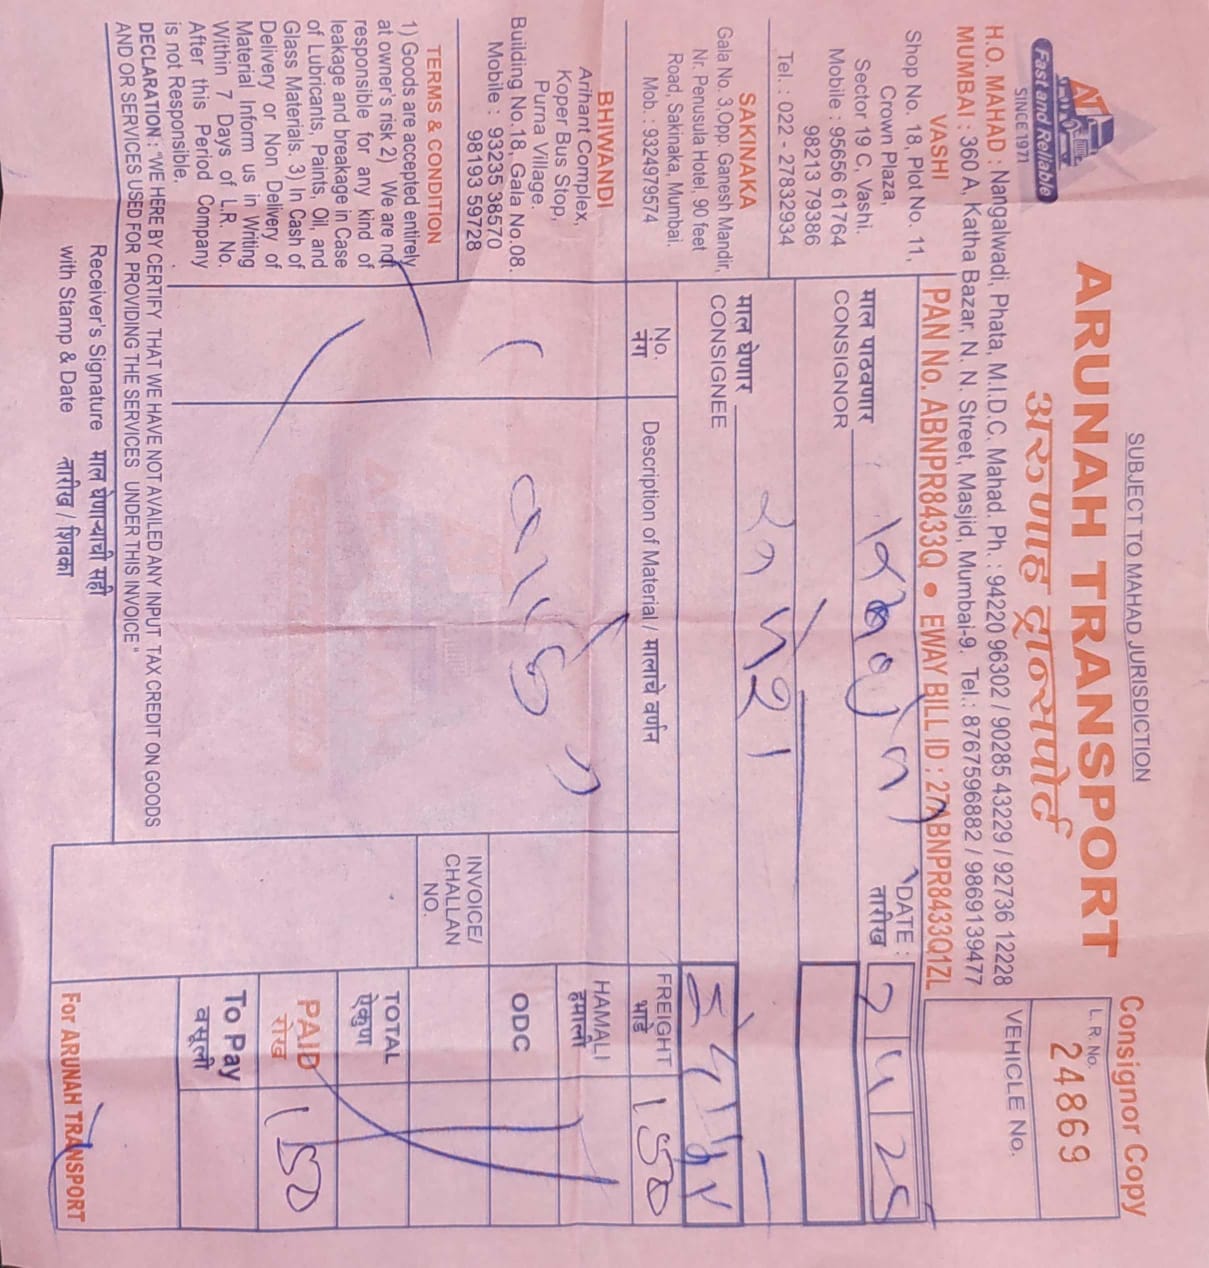 SUBJECT TO MAHAD JURISDICTION
Consignor Copy
Fast and Reliable
SINCE 1971
ARUNAH TRANSPORT
अरुणाह ट्रान्सपोर्ट
L. R. No.
24869
H.O. MAHAD : Nangalwadi, Phata, M.I.D.C. Mahad. Ph. : 94220 96302 / 90285 43229 / 92736 12228
MUMBAI : 360 A, Katha Bazar, N. N. Street, Masjid, Mumbai-9. Tel.: 8767596882 / 9869139477
VEHICLE No.
PAN No. ABNPR8433Q • EWAY BILL ID : 27ABNPR8433Q1ZL
VASHI
Shop No. 18, Plot No. 11,
Crown Plaza,
Sector 19 C, Vashi.
Mobile : 95656 61764
98213 79386
Tel. : 022 - 27832934
SAKINAKA
Gala No. 3,Opp. Ganesh Mandir,
Nr. Penusula Hotel, 90 feet
Road, Sakinaka, Mumbai.
Mob. : 9324979574
BHIWANDI
Arihant Complex,
Koper Bus Stop,
Purna Village.
Building No.18, Gala No.08.
Mobile : 93235 38570
98193 59728
TERMS & CONDITION
1) Goods are accepted entirely
at owner's risk 2) We are not
responsible for any kind of
leakage and breakage in Case
of Lubricants, Paints, Oil, and
Glass Materials. 3) In Cash of
Delivery or Non Delivery of
Material Inform us in Writing
Within 7 Days of L.R. No.
After this Period Company
is not Responsible.
माल पाठवणार
CONSIGNOR
DATE :
तारीख
2 4 25
माल घेणार
CONSIGNEE
No.
नंग
Description of Material / मालाचे वर्णन
FREIGHT
भाडे
150
HAMALI
हमाली
ODC
INVOICE/
CHALLAN
NO.
TOTAL
ऐकुण
PAID
रोख
150
To Pay
वसूली
DECLARATION : "WE HERE BY CERTIFY THAT WE HAVE NOT AVAILED ANY INPUT TAX CREDIT ON GOODS
AND OR SERVICES USED FOR PROVIDING THE SERVICES UNDER THIS INVOICE."
Receiver's Signature माल घेणाऱ्याची सही
with Stamp & Date तारीख / शिक्का
For ARUNAH TRANSPORT